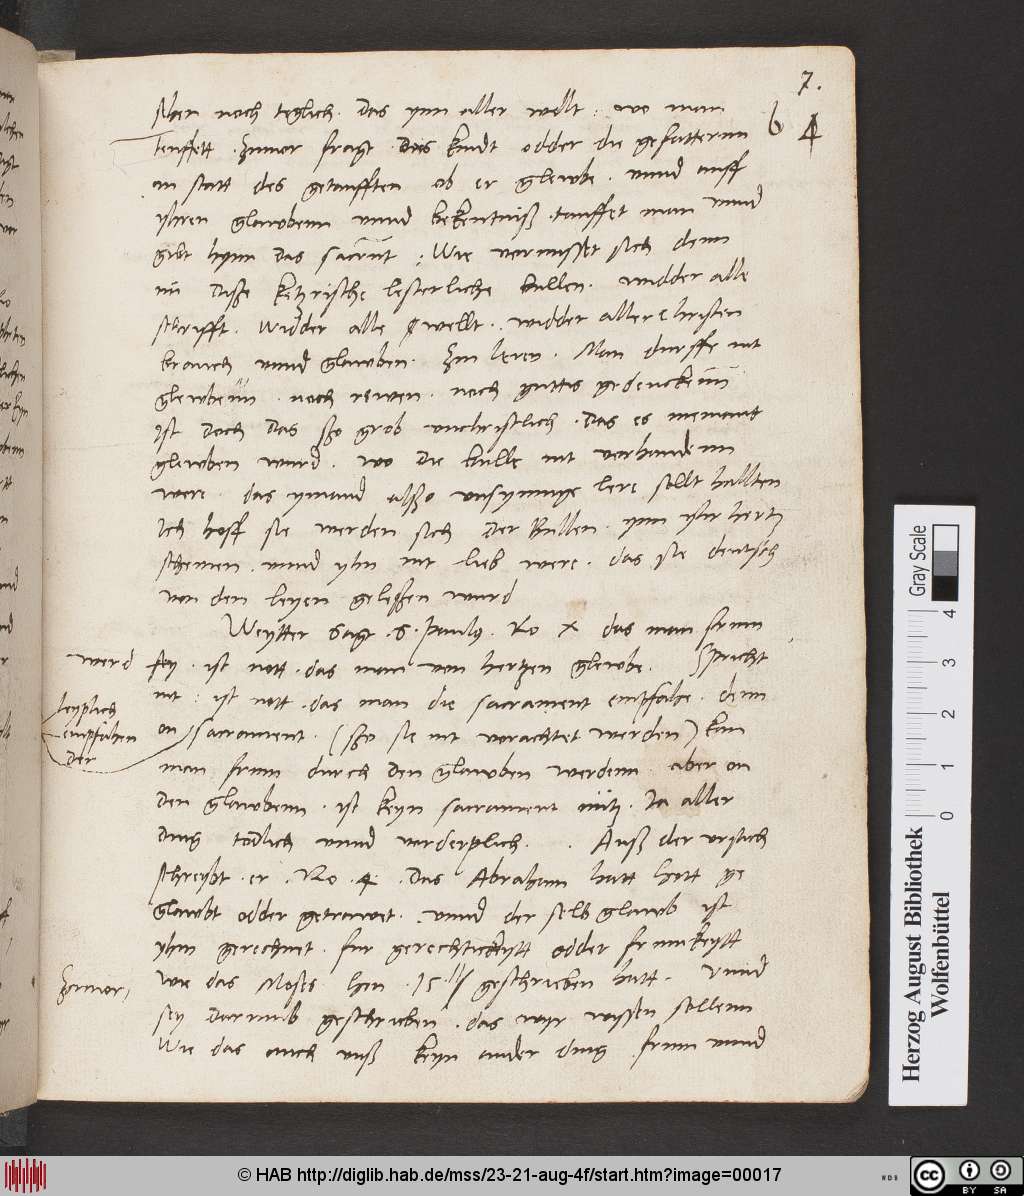 7.
b 4
aber noch teglich. Das ynn aller wellt: wo man
teuffett. Zuuor fragt. Das kindt odder die gefatternn
an statt des getaufften ob er glewbe. vnnd auff
yhren glawbenn vnnd bekentniß. tauffet man vnnd
gibt yhm das sacrament: Wie vormisset sich denn
nu diße ketzrische lesterliche bullen. widder alle
schrifft. widder alle wellt. widder aller christen
brauch vnnd glawben. Zu leren. Man durffe nit
glewbenn. noch rewen. noch guttis gedenckenn
ist doch das ßo grob vnchristlich. Das es niemant
glewben wurd. wo die bulle nit vorhandenn
were. das ymand alßo vnsynnige lere sollt hallten
Ich hoff sie werden sich der Bullen. ynn yhr hertz
schemen. vnnd yhn nit lieb were. das sie deutsch
von den leyen geleßen wurd
Weytter sagt. S. Paulus. Ro X das man frum
werd
sey. ist nott. das man von hertzen glewbe. Spricht
nit: ist nott. das man die sacrament empfahe. denn
leyplich
empfahen
der
on sacrament. (ßo sie nit vorachtet werden) kan
man frum durch den glawben werdenn aber on
den glawbenn. ist keyn sacrament nutz. Ja aller
ding todlich vnnd vorderplich. Auß der vrsach
schreybt. er. Ro. 4. Das Abraham hatt gott ge
glawbt odder getrawet. vnnd der selb glawb ist
yhm gerechnet. fur gerechtickeytt odder frumkeytt
Zuuor
wie das Moses Gen. 15 geschrieben hatt. vnnd
sey darumb geschrieben. das wyr wissen sollenn
Wie das auch vnß keyn ander ding frum vnnd
Herzog August Bibliothek
Wolfenbüttel
Gray Scale
0 1 2 3 4
© HAB http://diglib.hab.de/mss/23-21-aug-4f/start.htm?image=00017
WDB
cc BY SA